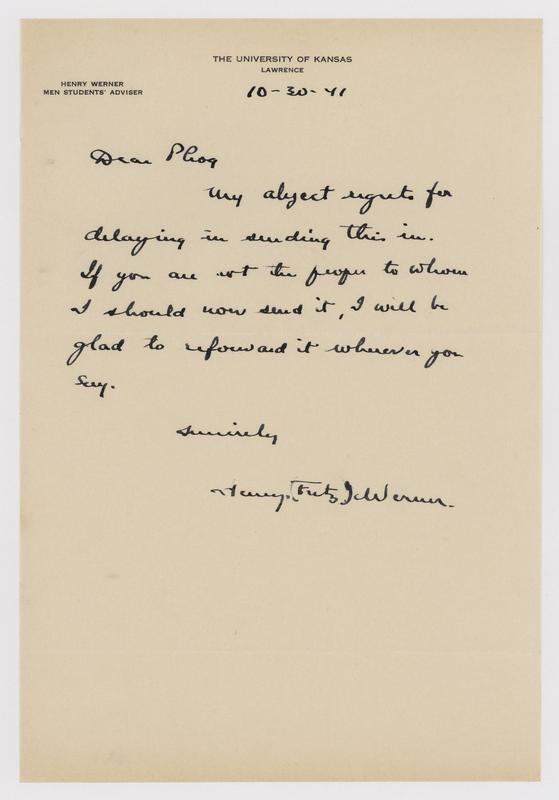 THE UNIVERSITY OF KANSAS
LAWRENCE
HENRY WERNER
MEN STUDENTS' ADVISER
10-30-41
Dear Phog
My abject regrets for
delaying in sending this in.
If you are not the proper to whom
I should now send it, I will be
glad to reforward it wherever you
say.
Sincirely
Henry (Fritz) Werner.